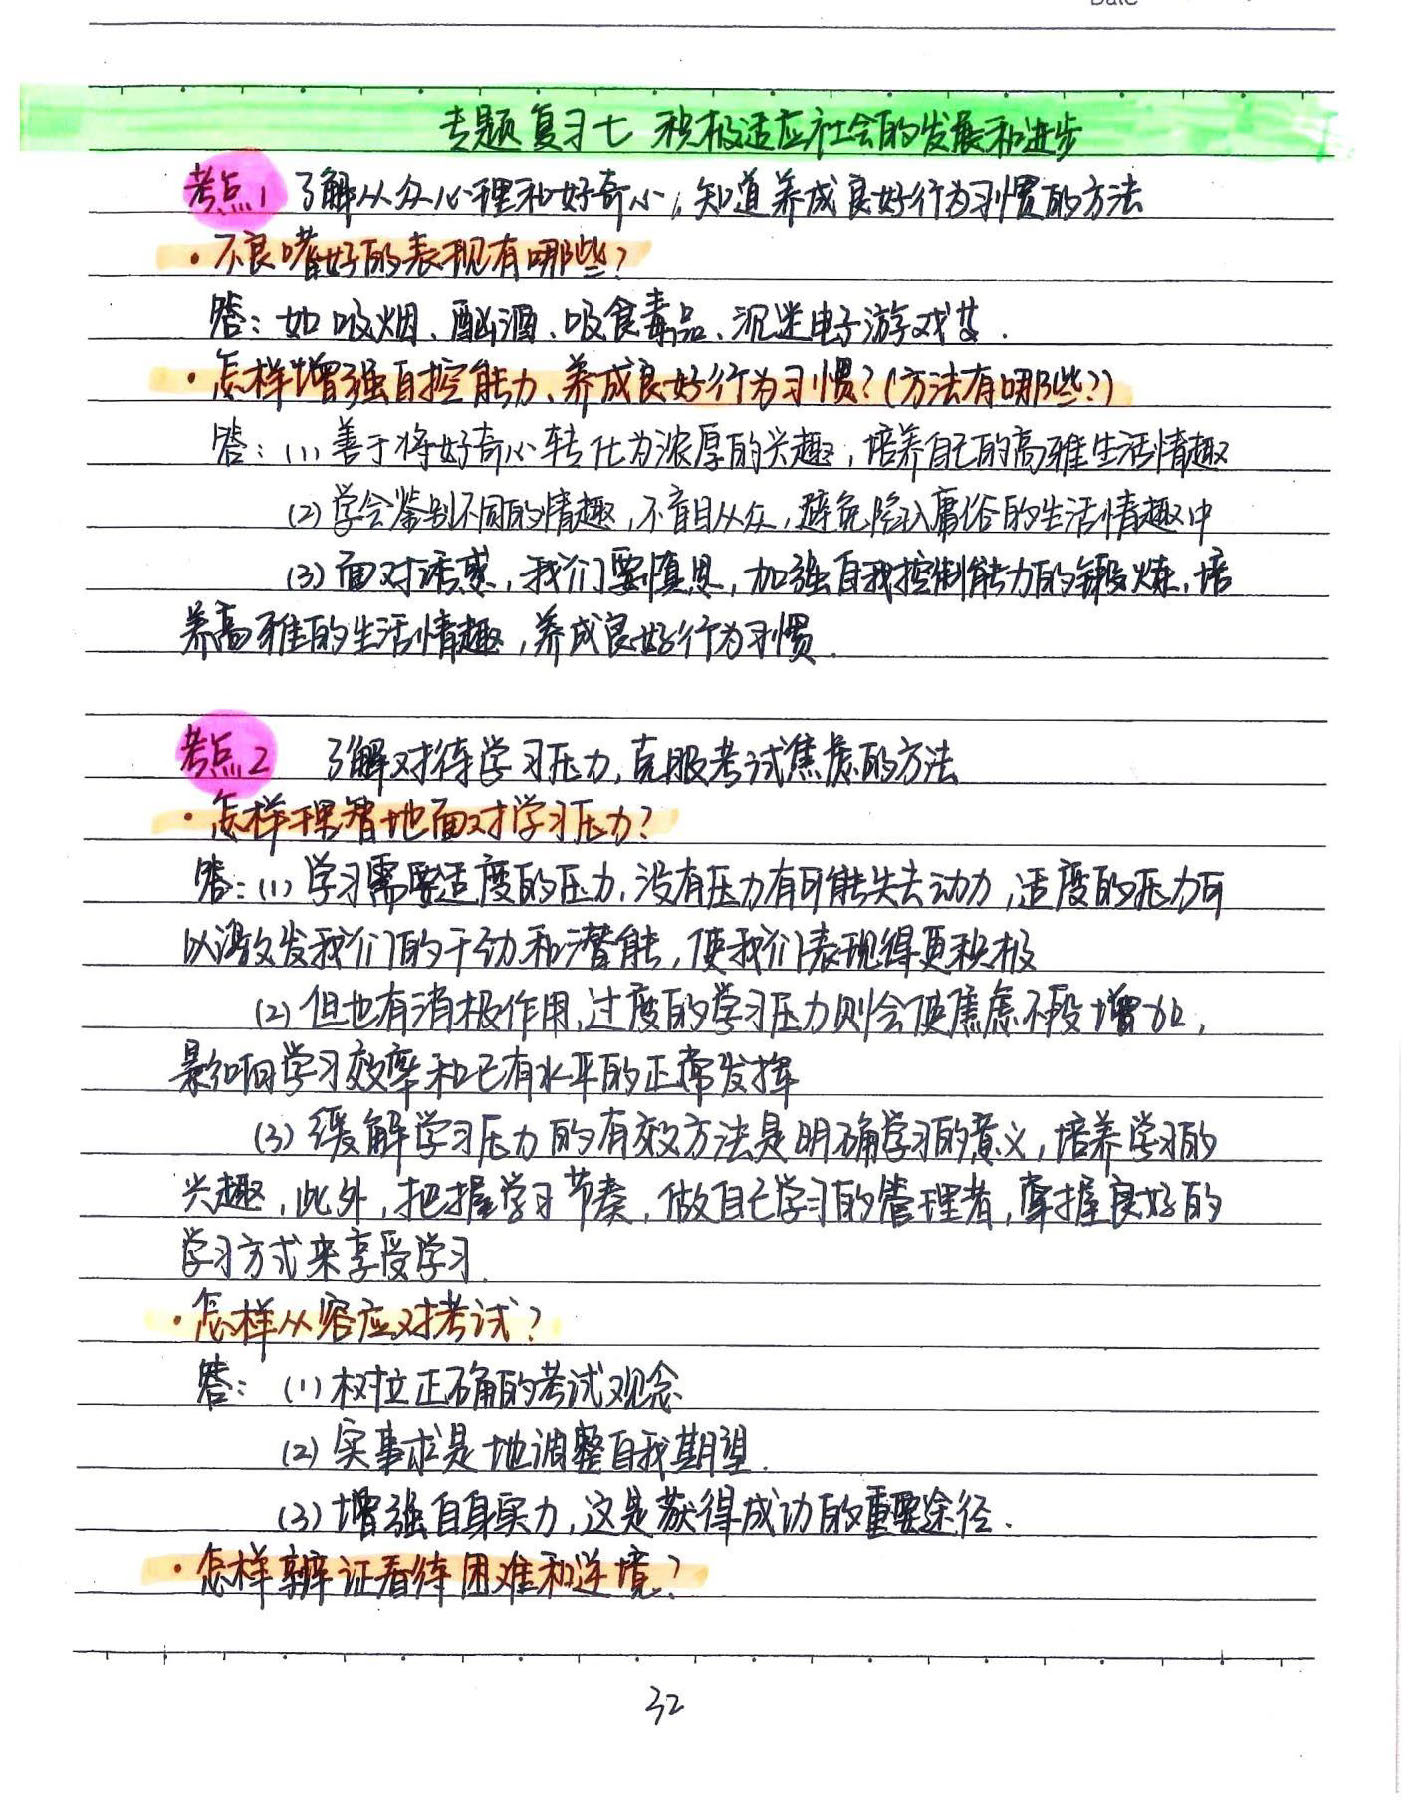 Date
专题复习七 积极适应社会的发展和进步
考点1 了解从众心理和好奇心,知道养成良好行为习惯的方法
·不良嗜好的表现有哪些?
答:如吸烟、酗酒、吸食毒品、沉迷电子游戏等.
·怎样增强自控能力、养成良好行为习惯?(方法有哪些?)
答:(1)善于将好奇心转化为浓厚的兴趣,培养自己的高雅生活情趣
(2)学会鉴别不同的情趣,不盲目从众,避免陷入庸俗的生活情趣中
(3)面对诱惑,我们要慎思,加强自我控制能力的锻炼,培
养高雅的生活情趣,养成良好行为习惯.
考点2 了解对待学习压力,克服考试焦虑的方法
·怎样理智地面对学习压力?
答:(1)学习需要适度的压力,没有压力有可能失去动力,适度的压力可
以激发我们的干劲和潜能,使我们表现得更积极
(2)但也有消极作用,过度的学习压力则会使焦虑不段增加,
影响学习效率和已有水平的正常发挥
(3)缓解学习压力的有效方法是明确学习的意义,培养学习的
兴趣,此外,把握学习节奏,做自己学习的管理者,掌握良好的
学习方式来享受学习.
·怎样从容应对考试?
答:(1)树立正确的考试观念
(2)实事求是地调整自我期望.
(3)增强自身实力,这是获得成功的重要途径.
·怎样辨证看待困难和逆境?
32